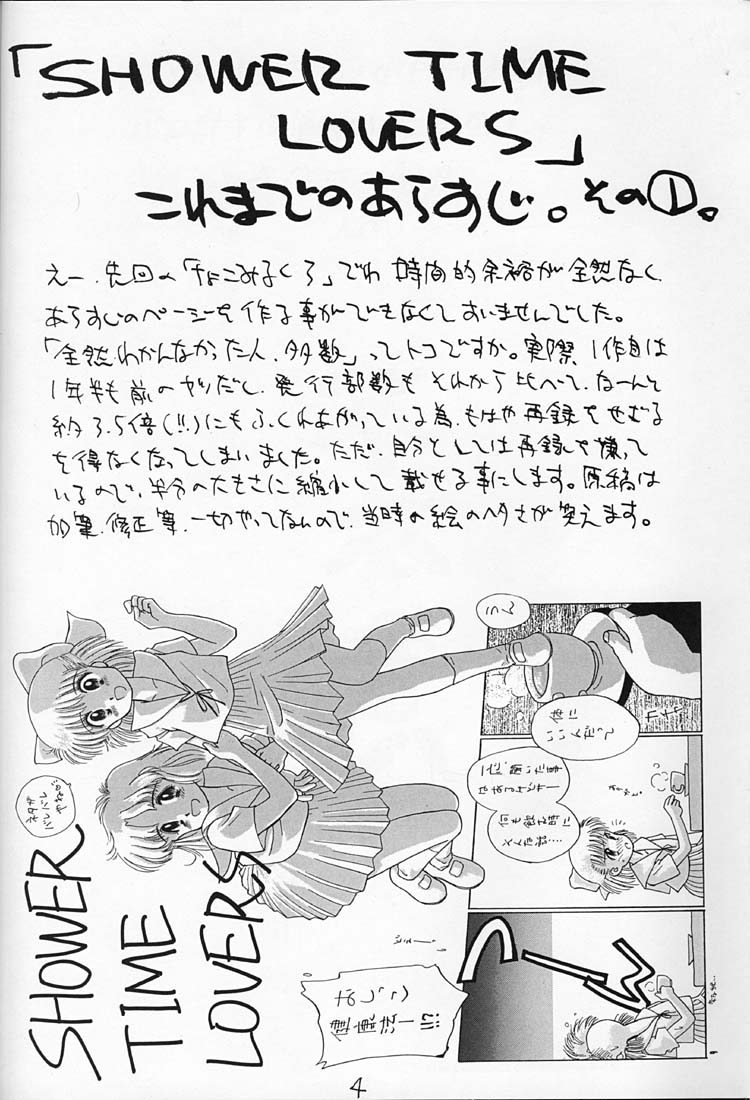 「SHOWER TIME
LOVERS」
これまでのあらすじ。その①。
えー、先回の「ちょこみるくろ」でわ 時間的余裕が全然なく、
あらすじのページを作る事ができなくてすいませんでした。
「全然わかんなかった人、多数」ってトコですか。実際1作目は
1年半も前のヤツだし、発行部数もそれから比べて、なーんと
約3.5倍(!!)にもふくれあがっている為、もはや再録をせざる
を得なくなってしまいました。ただ、自分としては再録を嫌って
いるので、半分の大きさに縮小して載せる事にします。原稿は
加筆、修正等、一切やってないので、当時の絵のヘタさが笑えます。
うん
体に
いいんだって
何も飲む時に
SHOWER
TIME
LOVERS
よしっ
健康法ー!!!
つーん
4